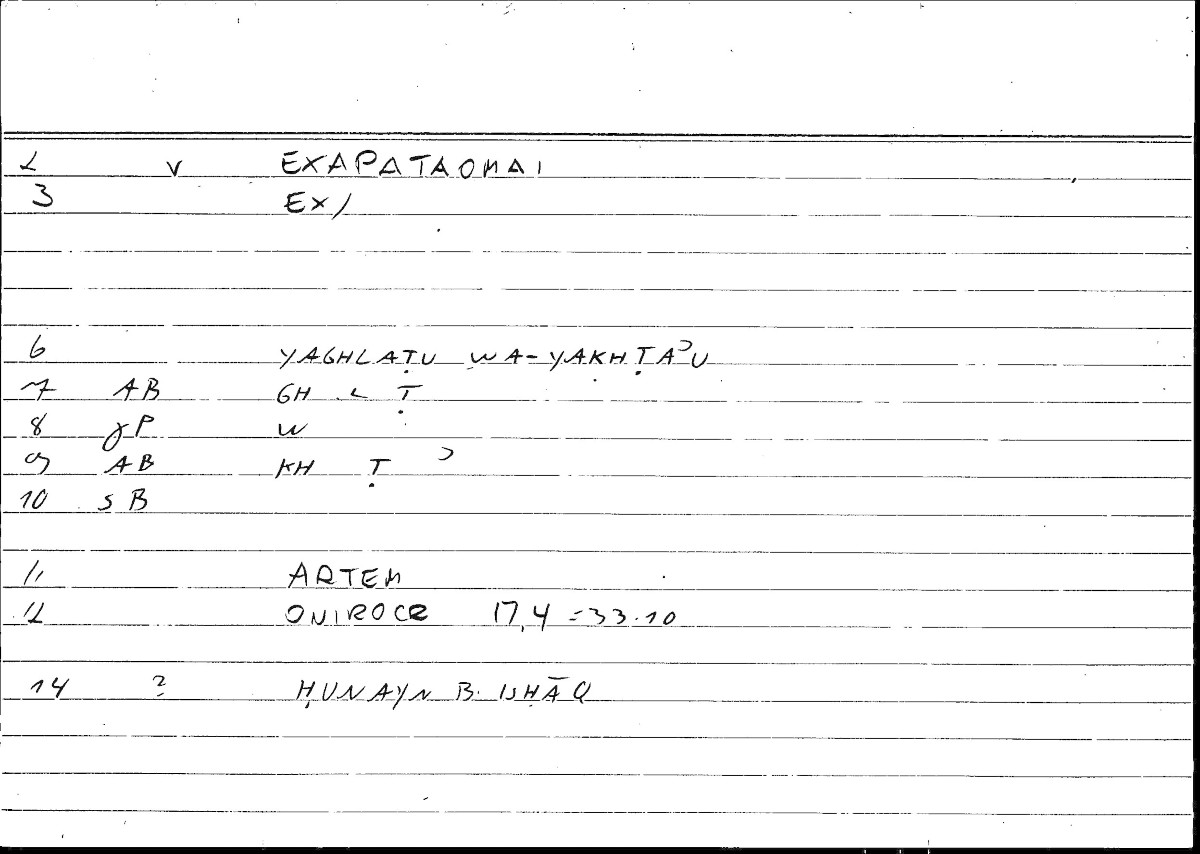 2 v EXAPATAOMAI
3 EX/
6 YAGHLAṬU WA-YAKHṬAʾU
7 AB GH L Ṭ
8 γP W
9 AB KH Ṭ ʾ
10 SB
11 ARTEM
12 ONIROCR 17,4 = 33.10
14 ? ḤUNAYN B. ISḤĀQ